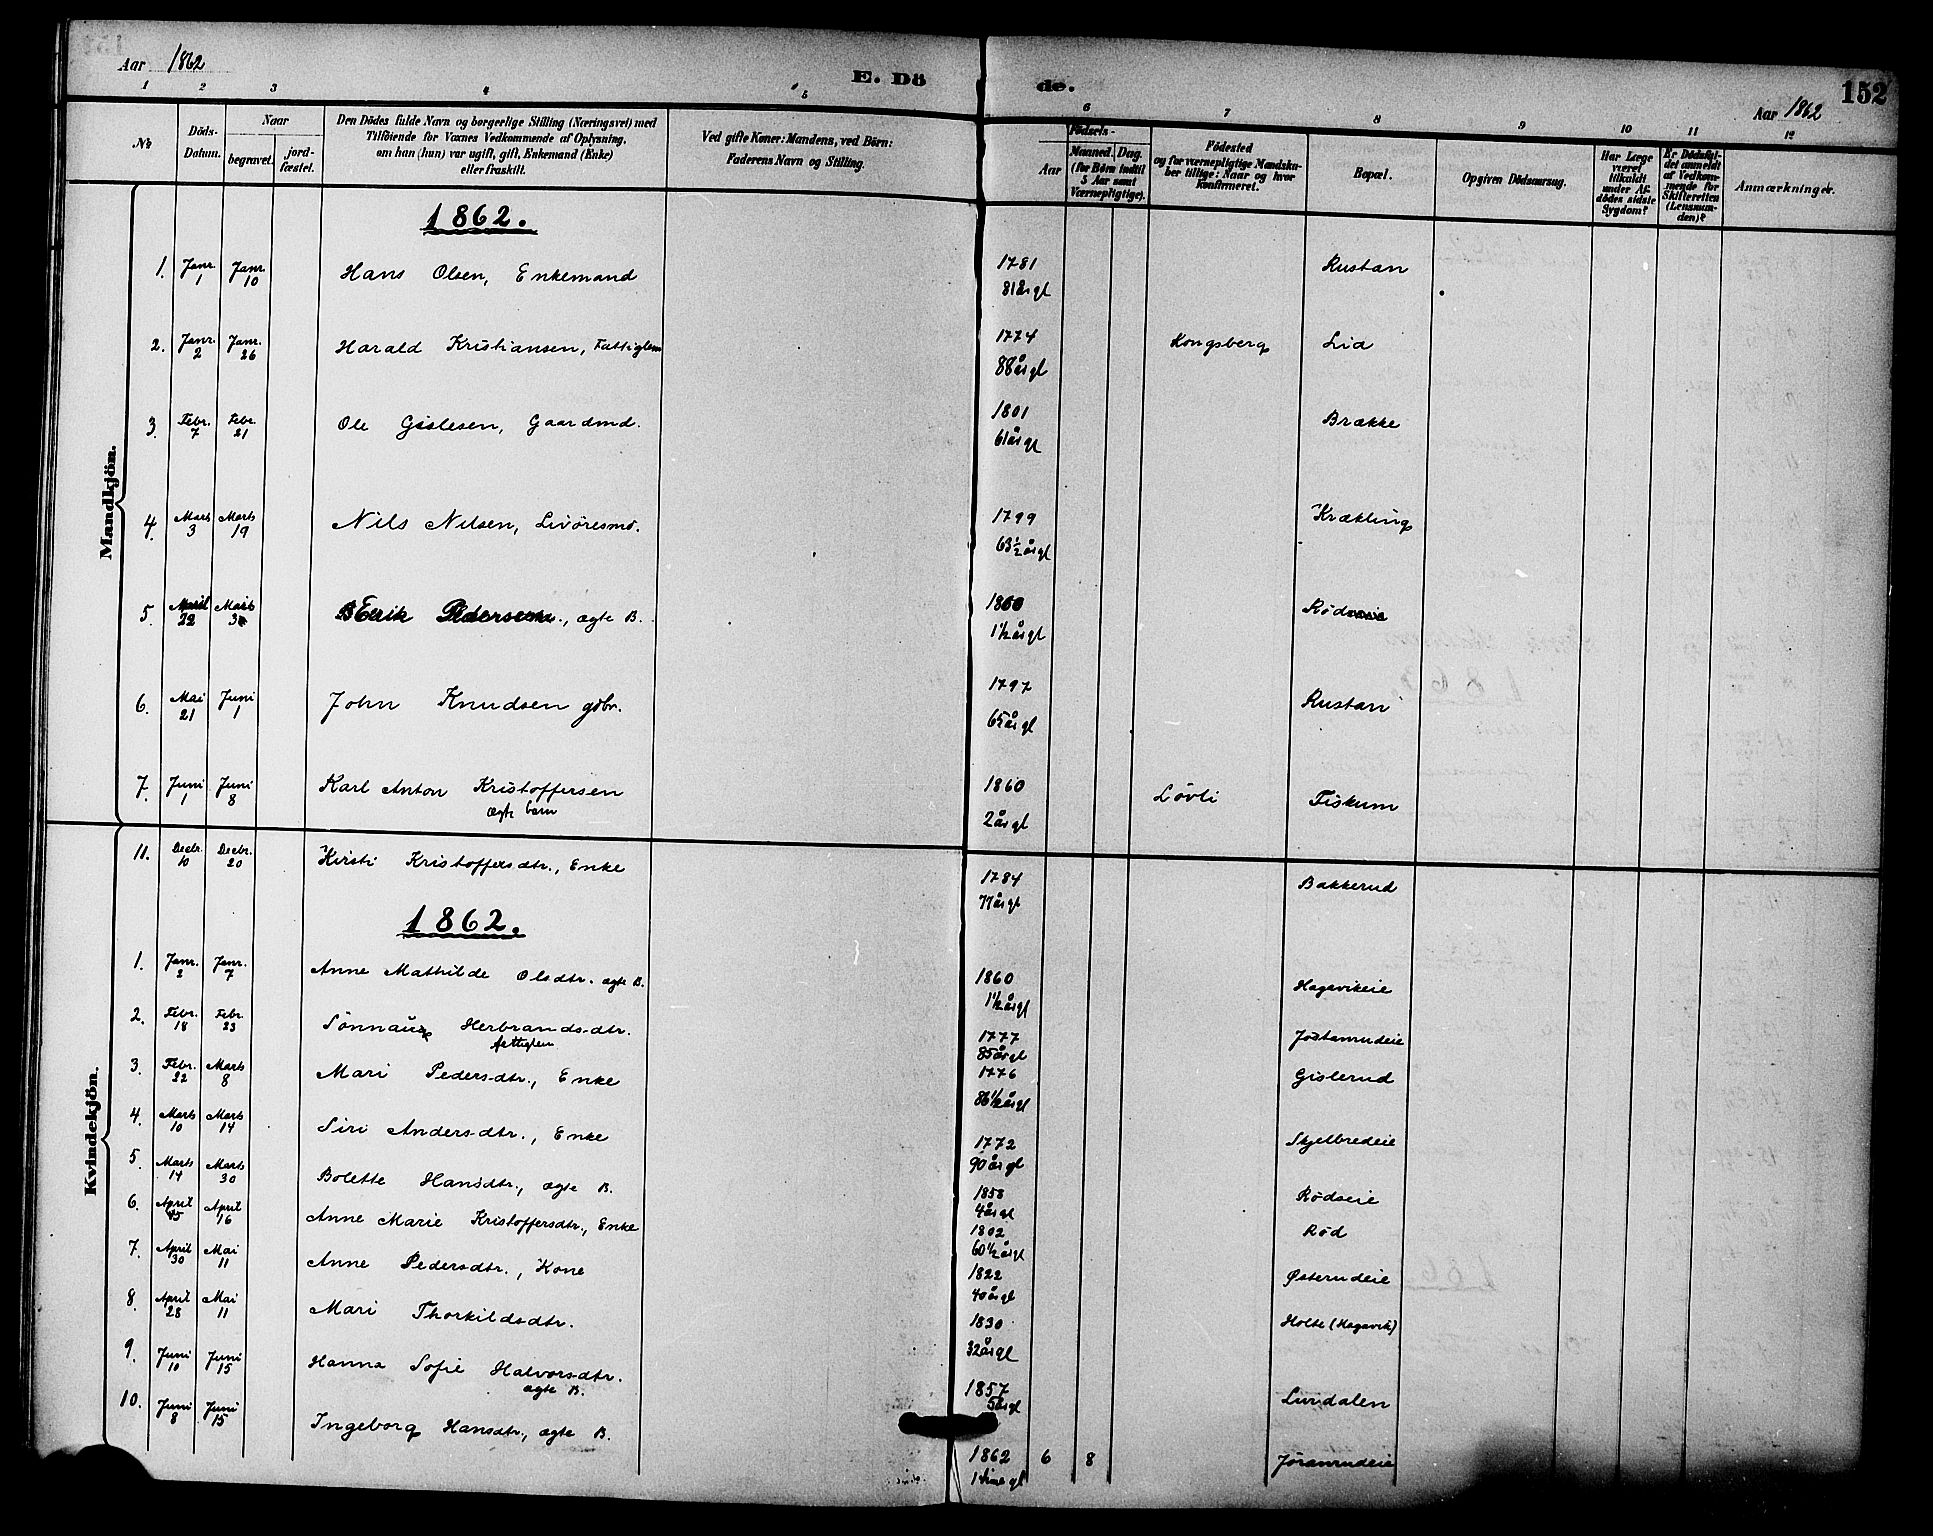 Aar 1862 E. Döde. Aar 1862 152
1 2 3 4 5 6 7 8 9 10 11 12
No Döds-Datum. Naar begravet. jord-fæstet. Den Dödes fulde Navn og borgerlige Stilling (Næringsvei) med Tilföiende for Voxnes Vedkommende af Oplysning, om han (hun) var ugift, gift, Enkemand (Enke) eller fraskilt. Ved gifte Koner: Mandens, ved Börn: Faderens Navn og Stilling. Födsels- Aar Maaned. Dag. (for Börn indtil 5 Aar samt Værnepligtige). Födested og for værnepligtige Mandskaber tillige: Naar og hvor konfirmeret. Bopæl. Opgiven Dödsaarsag. Har Læge været tilkaldt under Afdödes sidste Sygdom? Er Dödsfaldet anmeldt af Vedkommende for Skifteretten (Lensmanden)? Anmærkninger.
Mandkjön.
1862.
1. Janr. 1 Janr. 10 Hans Olsen, Enkemand 1781 81årgl Rustan
2. Janr. 2 Janr. 26 Harald Kristiansen, Fattiglem 1774 88årgl Kongsberg Lid
3. Febr. 7 Febr. 21 Ole Gislesen, Gaardmd. 1801 61årgl Brække
4. Marts 3 Marts 19 Nils Nilsen, Livöresmd. 1799 63½årgl Krækling
5. 22 Marts Erik Pedersen, ægte B. 1860 1½årgl
6. Mai 21 Juni 1 John Knudsen gdbr. 1797 65årgl Rustan
7. Juni 1 Juni 8 Karl Anton Kristoffersen ægte barn 1860 2årgl Løvli Fiskum
Kvindekjön.
11. Decbr. 10 Decbr. 20 Kirsti Kristoffersdtr., Enke 1784 77årgl Bakkerud
1862.
1. Janr. 2 Janr. 7 Anne Mathilde Olsdtr. ægte B. 1860 1½årgl Hagavikeie
2. Febr. 18 Febr. 23 Herbrandsdtr. fattiglem 1777 85årgl Jostanrudeie
3. Febr. 22 Marts 8 Mari Pedersdtr., Enke 1776 86½årgl Gislerud
4. Marts 10 Marts 14 Siri Andersdtr., Enke 1772 90årgl Skjelbredeie
5. Marts 14 Marts 30 Bolette Hansdtr., ægte B. 1858 4årgl Rødseie
6. April April 16 Anne Marie Kristoffersdtr., Enke 1802 60½årgl Rød
7. April 30 Mai 11 Anne Pedersdtr., Kone 1822 40årgl Østerudeie
8. April 28 Mai 11 Mari Thorkildsdtr. 1830 32årgl Holte (Hagavik)
9. Juni 10 Juni 15 Hanna Sofie Halvorsdtr. ægte B. 1857 5årgl Lurdalen
10. Juni 8 Juni 15 Ingeborg Hansdtr., ægte B. 1862 6 8 1 time gl Jøranrudeie